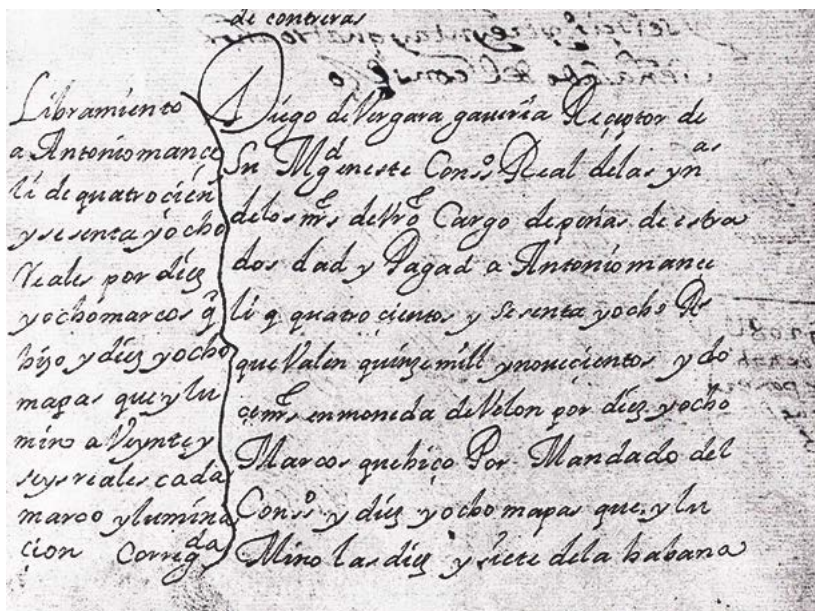 de contreras
Libramiento
a Antonio mance
li de quatrocien
y sesenta y ocho
Reales por diez
y ocho marcos q̃
hizo y diez y ocho
mapas que ylu
mino a Veynte y
seys reales cada
marco y lumina
çion Correg.da
A Diego de Vergara gaveria Reçeptor de
Su Mg.d en este Cons.o Real de las yn.as
de los mrs de Vro Cargo de penas de estra
dos dad y Pagad a Antonio mance
li q quatroçientos y Sesenta y ocho Rs
que Valen quinze mill y noveçientos y do
çe mrs en moneda de Velon por diez y ocho
Marcos que hiço Por Mandado del
Cons.o y diez y ocho mapas que y lu
Mino las diez y siete de la habana